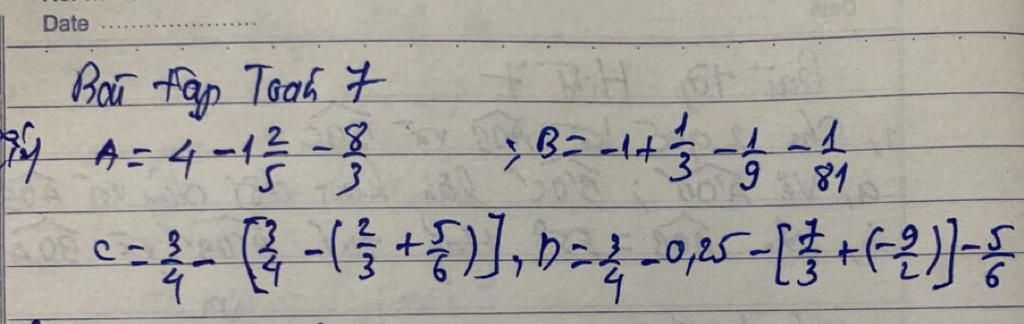 Date
Bài tập Toán 7
A = 4 - 1 2/5 - 8/3 ; B = -1 + 1/3 - 1/9 - 1/81
C = 3/4 - [3/4 - (2/3 + 5/6)], D = 3/4 - 0,25 - [7/3 + (-9/2)] - 5/6